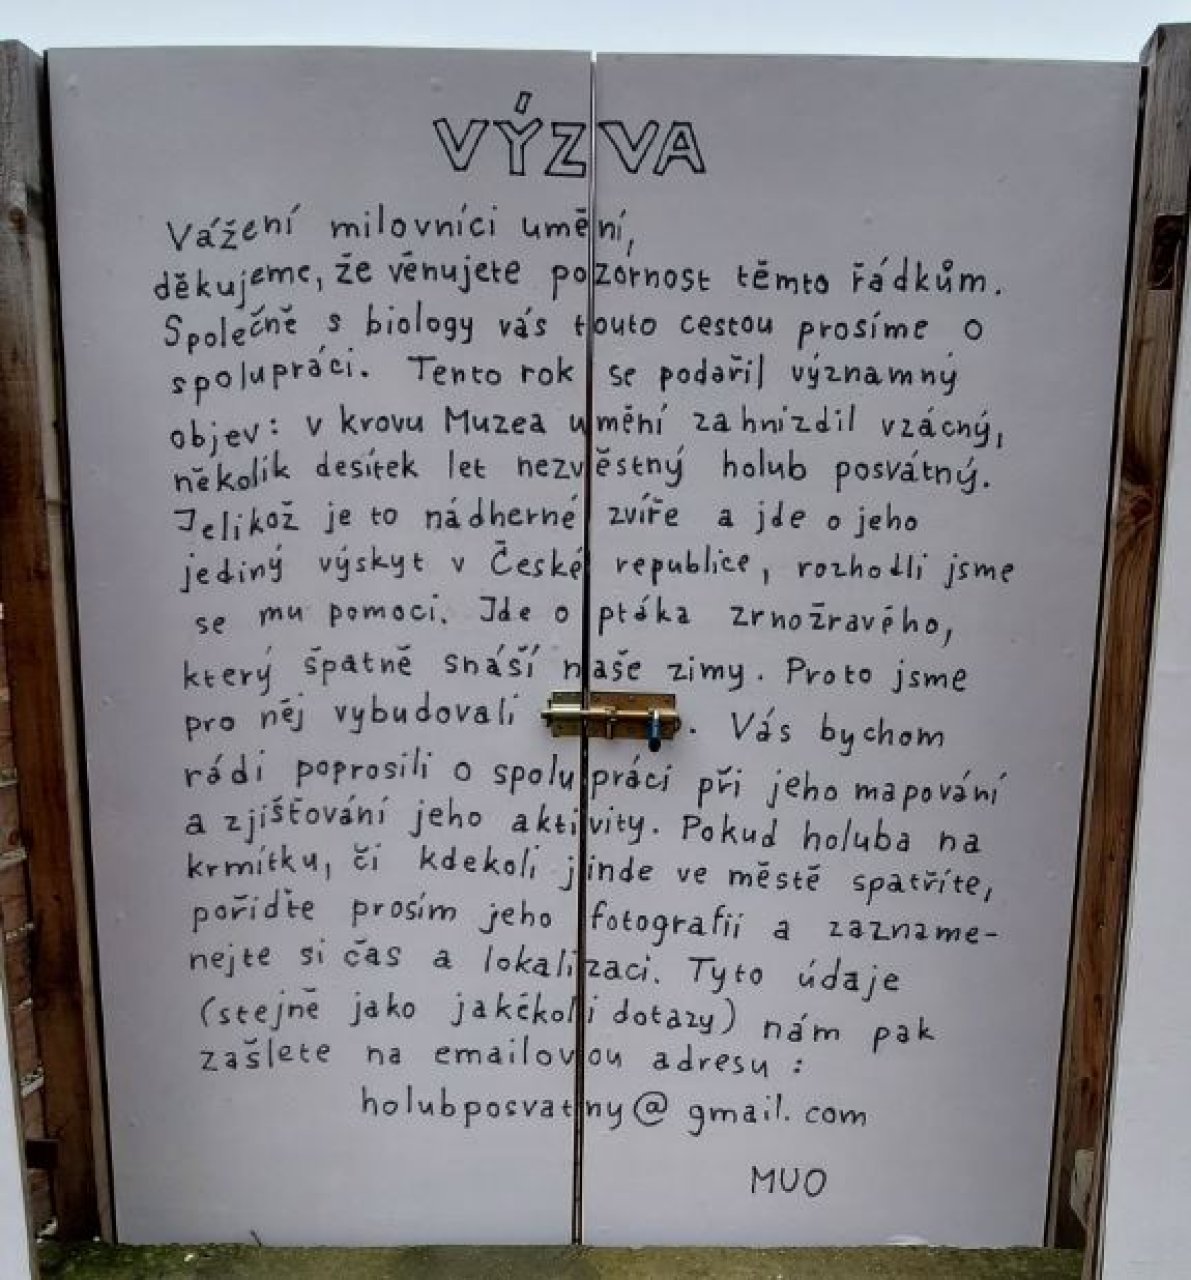 VÝZVA
Vážení milovníci umění,
děkujeme, že věnujete pozornost těmto řádkům.
Společně s biology vás touto cestou prosíme o
spolupráci. Tento rok se podařil významný
objev: v krovu Muzea umění zahnízdil vzácný,
několik desítek let nezvěstný holub posvátný.
Jelikož je to nádherné zvíře a jde o jeho
jediný výskyt v České republice, rozhodli jsme
se mu pomoci. Jde o ptáka zrnožravého,
který špatně snáší naše zimy. Proto jsme
pro něj vybudovali . Vás bychom
rádi poprosili o spolupráci při jeho mapování
a zjišťování jeho aktivity. Pokud holuba na
krmítku, či kdekoli jinde ve městě spatříte,
pořiďte prosím jeho fotografii a zazname-
nejte si čas a lokalizaci. Tyto údaje
(stejně jako jakékoli dotazy) nám pak
zašlete na emailovou adresu:
holubposvatny@gmail.com
MUO